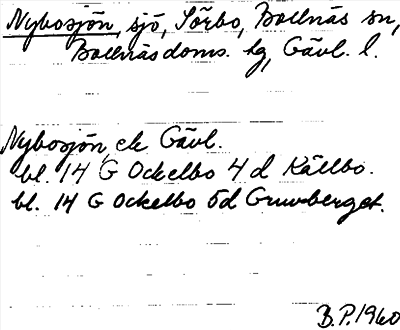 Nybosjön, sjö, Sörbo, Bollnäs sn,
Bollnäs doms. hg, Gävl. l.
Nybosjön, ek Gävl.
bl. 14 G Ockelbo 4 d Källbo.
bl. 14 G Ockelbo 5d Gruvberget.
B.P. 1960